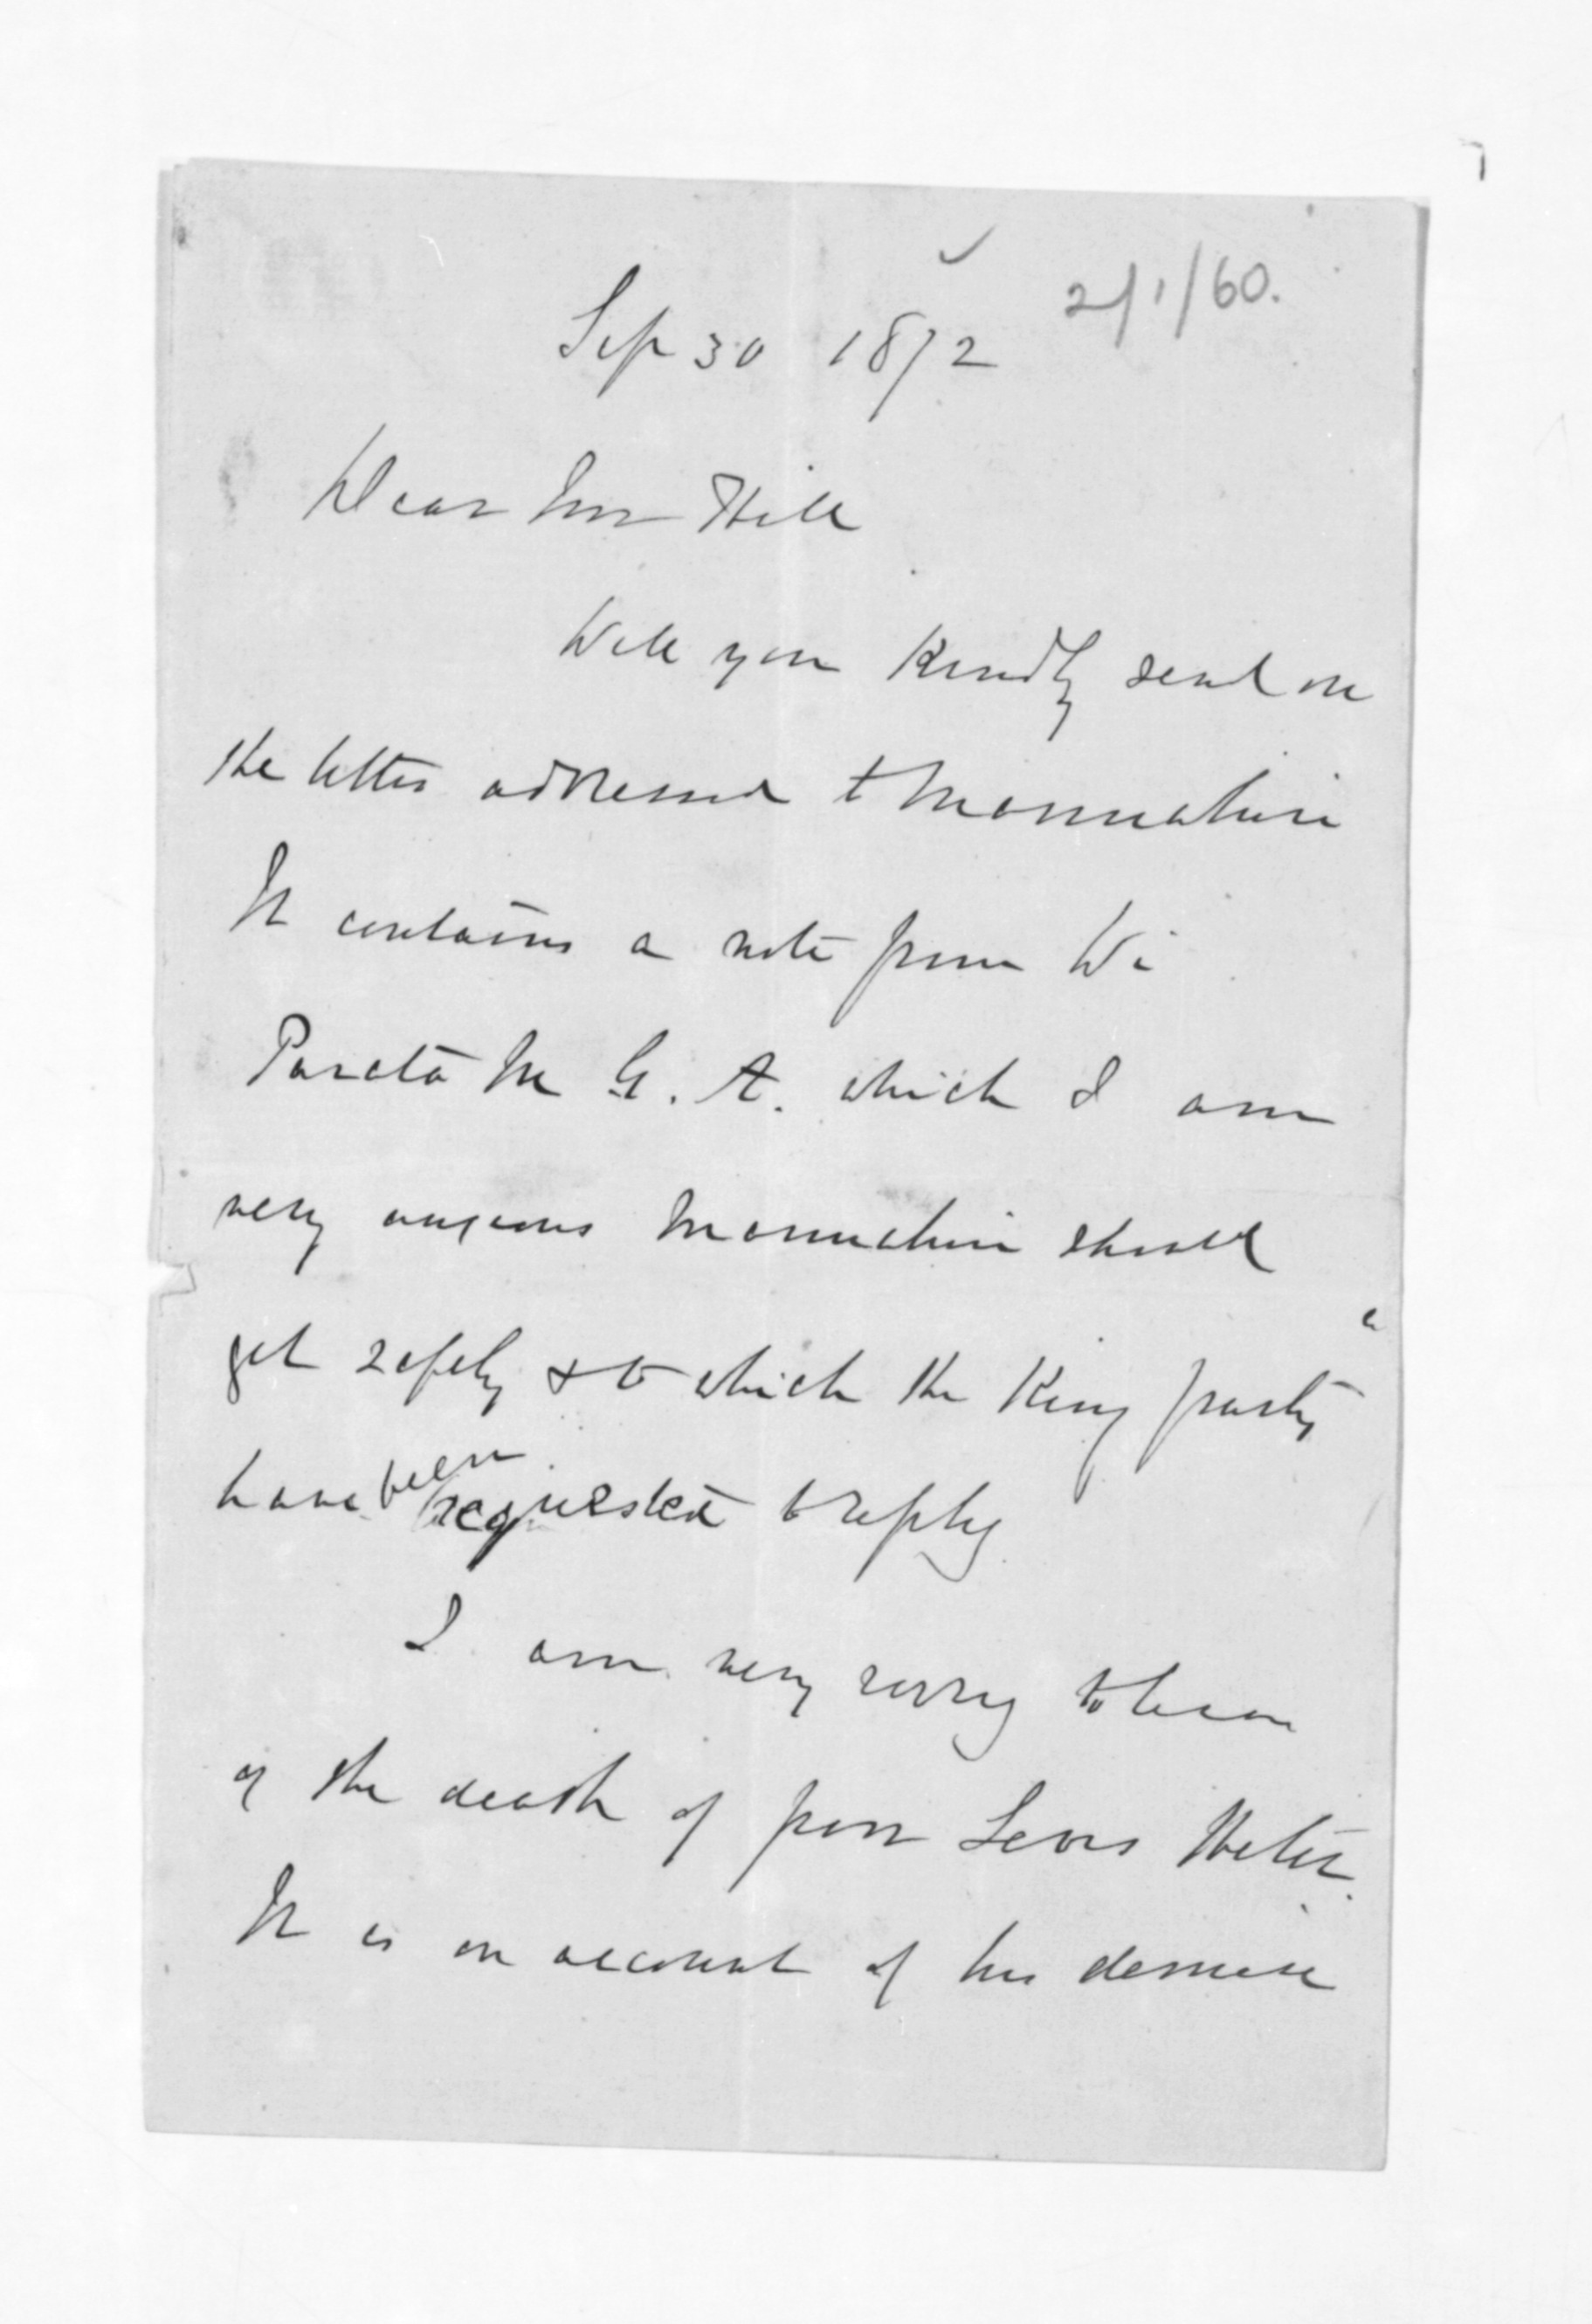 2/1/60.
Sep 30 1872
Dear Mr Hill
Will you kindly send on
the letter addressed to Manuwhiri
It contains a note from Wi
Parata M G. A. which I am
very anxious Manuwhiri should
get safely & to which the King party
have been requested to reply
I am very sorry to hear
of the death of poor Louis Hetit.
It is on account of his demise